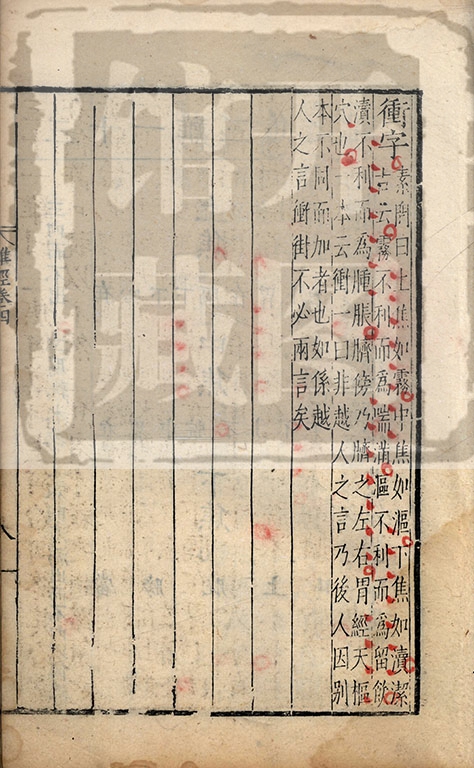 衝字
素問曰上焦如霧中焦如漚下焦如瀆潔
古云霧不利而為喘滿漚不利而為留飲
瀆不利而為腫脹臍傍乃臍之左右胃經天樞
穴也一本云衝一曰非越人之言乃後人因別
本不同而加者也如係越
人之言衝街不必兩言矣
難經卷四
八
館藏